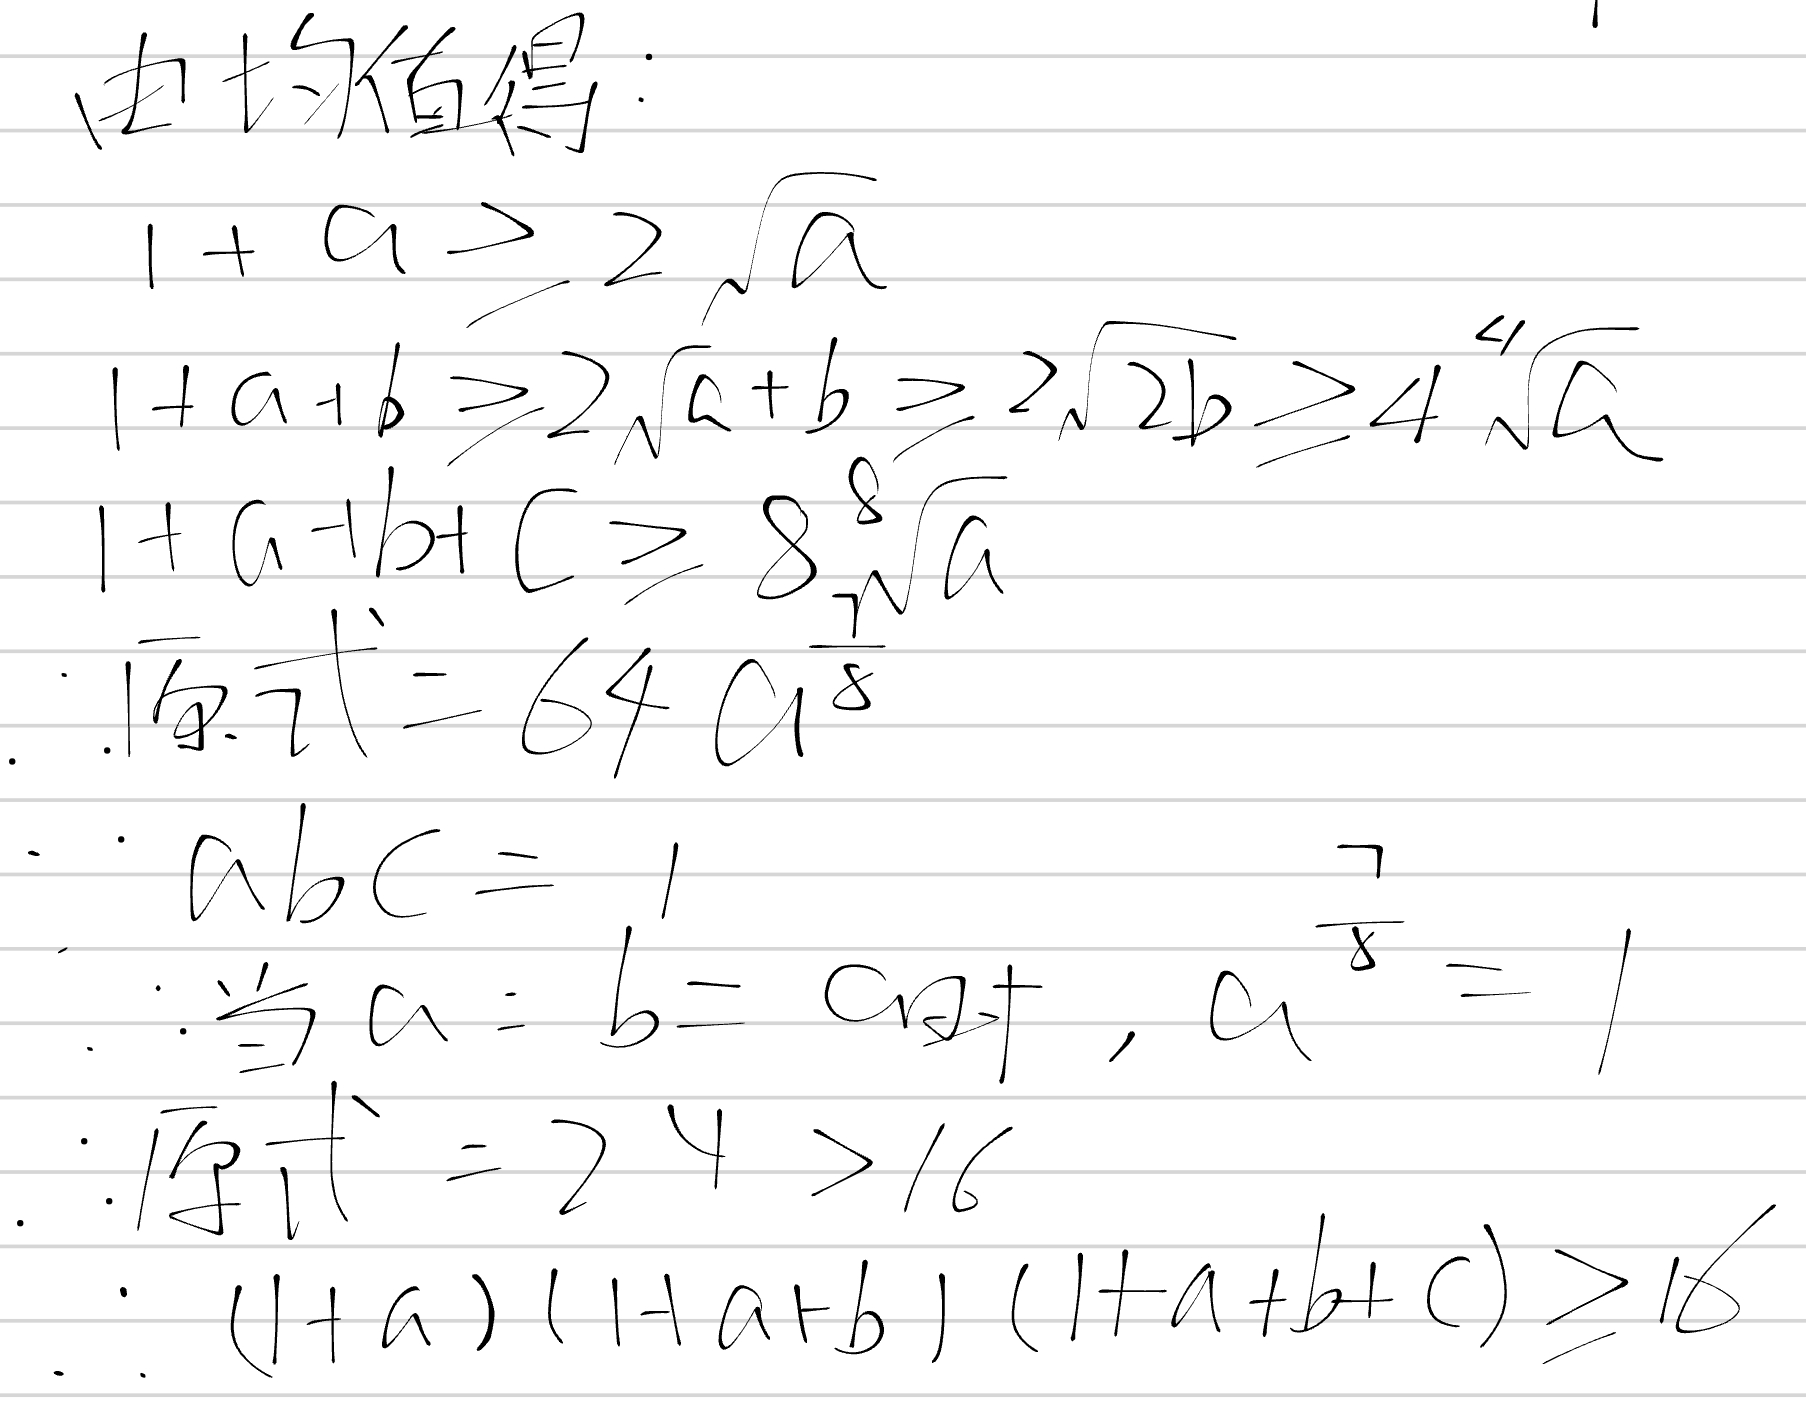 由均值得:
1+a≥2√a
1+a+b≥2√a+b≥2√2b≥4⁴√a
1+a+b+c≥8⁸√a
∴原式=64a^(7/8)
∵abc=1
∴当a=b=c时,a^(7/8)=1
∴原式=24>16
∴(1+a)(1+a+b)(1+a+b+c)≥16